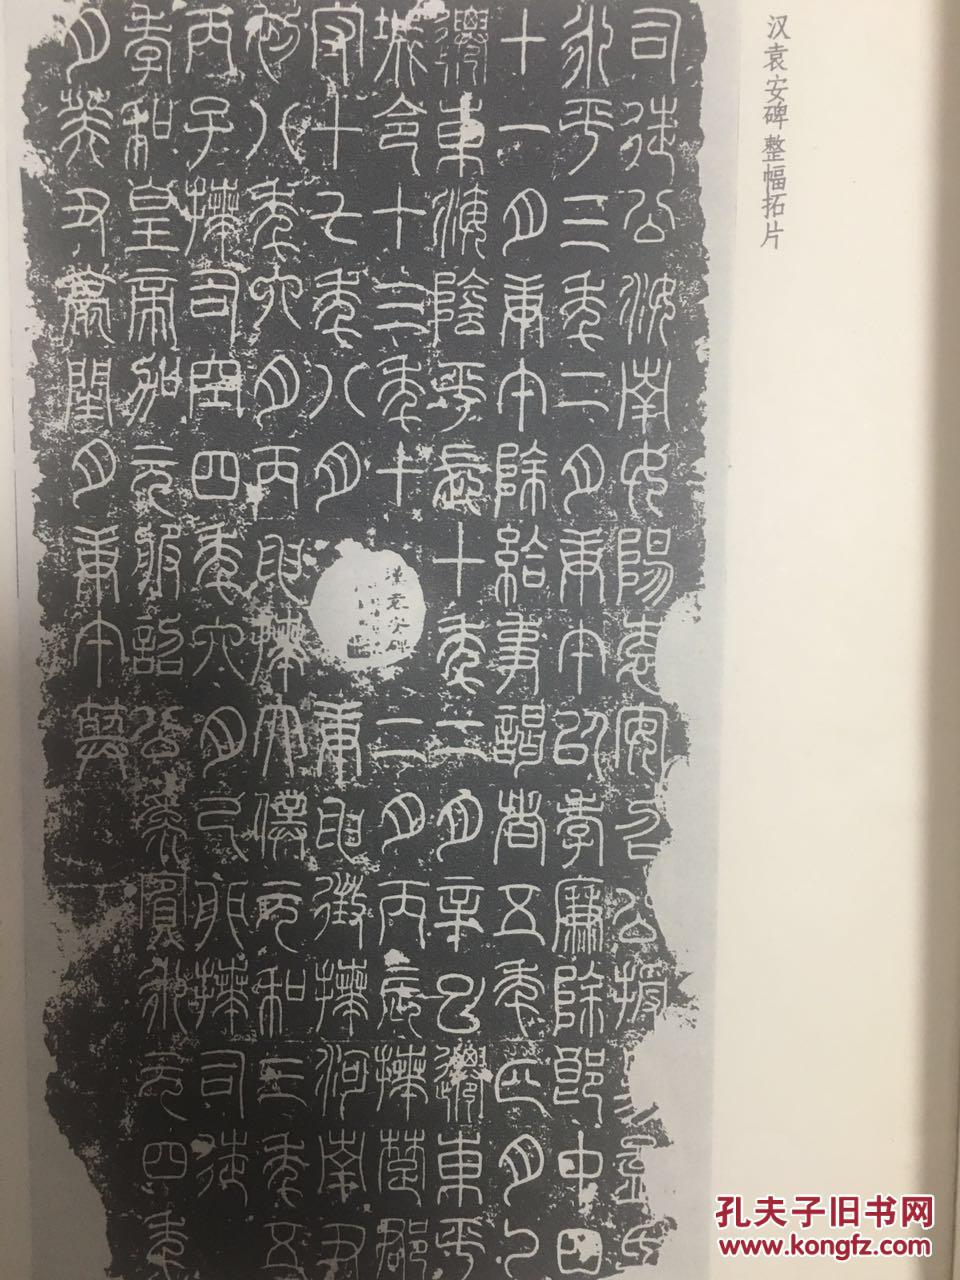 汉袁安碑整幅拓片
司徒公汝南女陽袁安召公授易孟氏
永平三年二月庚午以孝廉除郎中四
十一月庚午除給事謁者五年正月乙
遷東海陰平長十年二月辛巳遷東平
城令十三年十二月丙辰拜楚郡
守十七年八月庚申徵拜河南尹
初八年六月丙申拜太僕元和三年五
丙子拜司空四年六月己卯拜司徒
孝和皇帝加元服詔公為賓永元四年
月癸丑薨閏月庚午葬
漢袁安碑
孔夫子旧书网
www.kongfz.com